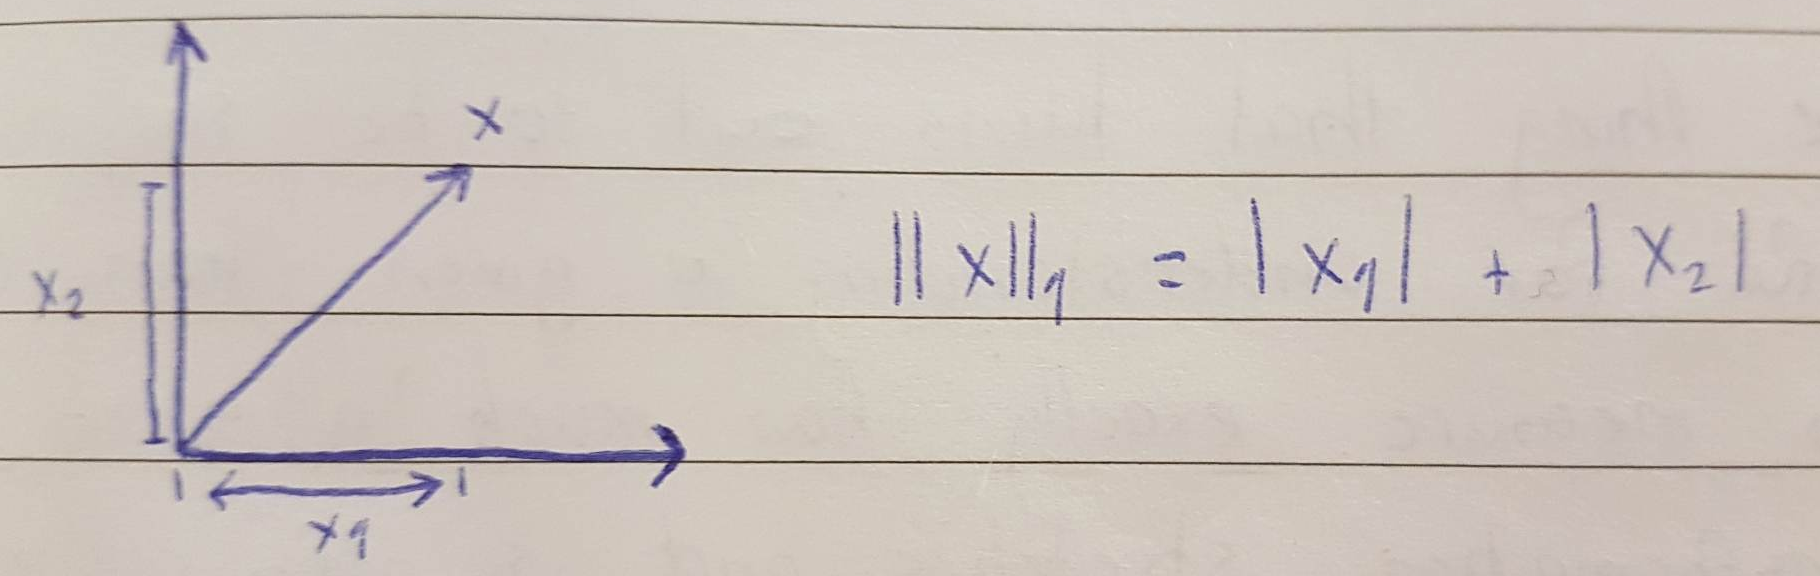 x
x₂
‖x‖₁ = |x₁| + |x₂|
x₁